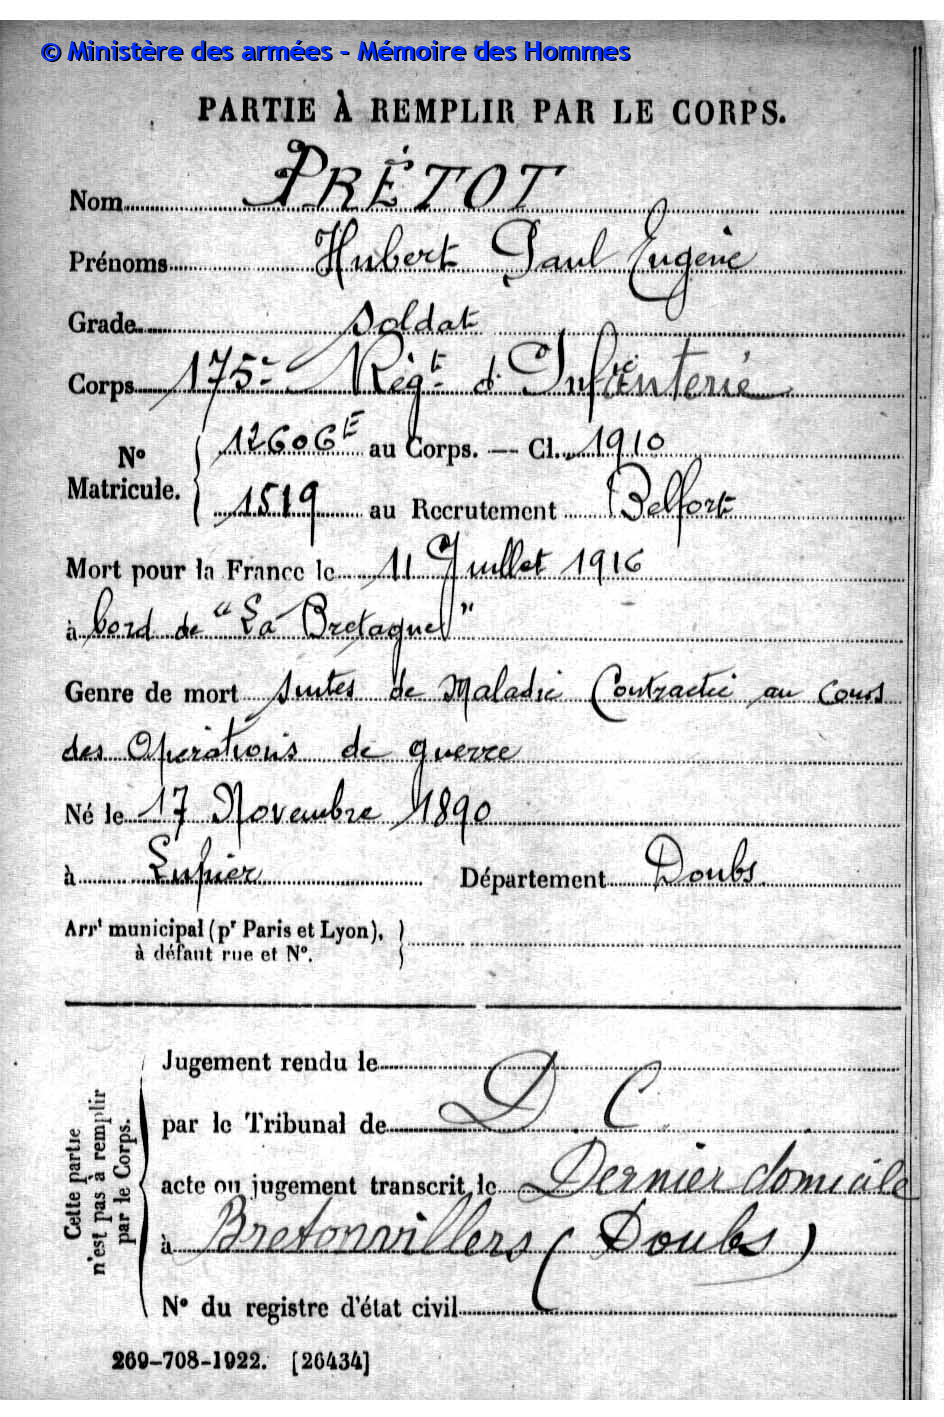 © Ministère des armées - Mémoire des Hommes
PARTIE À REMPLIR PAR LE CORPS.
Nom PRÉTOT
Prénoms Hubert Paul Eugène
Grade soldat
Corps 175e Régt d'Infanterie
Nº Matricule. 12606E au Corps. — Cl. 1910
1519 au Recrutement Belfort
Mort pour la France le 11 Juillet 1916
à bord de "La Bretagne"
Genre de mort suites de Maladie Contractée au cours
des Opérations de guerre
Né le 17 Novembre 1890
à Luhier Département Doubs
Arrt municipal (pr Paris et Lyon),
à défaut rue et Nº.
Cette partie n'est pas à remplir par le Corps.
Jugement rendu le
par le Tribunal de D. C.
acte ou jugement transcrit le Dernier domicile
à Bretonvillers (Doubs)
Nº du registre d'état civil
269-708-1922. [26434]